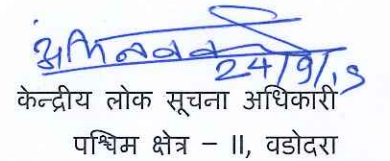 24/9/19
केन्द्रीय लोक सूचना अधिकारी
पश्चिम क्षेत्र – II, वडोदरा